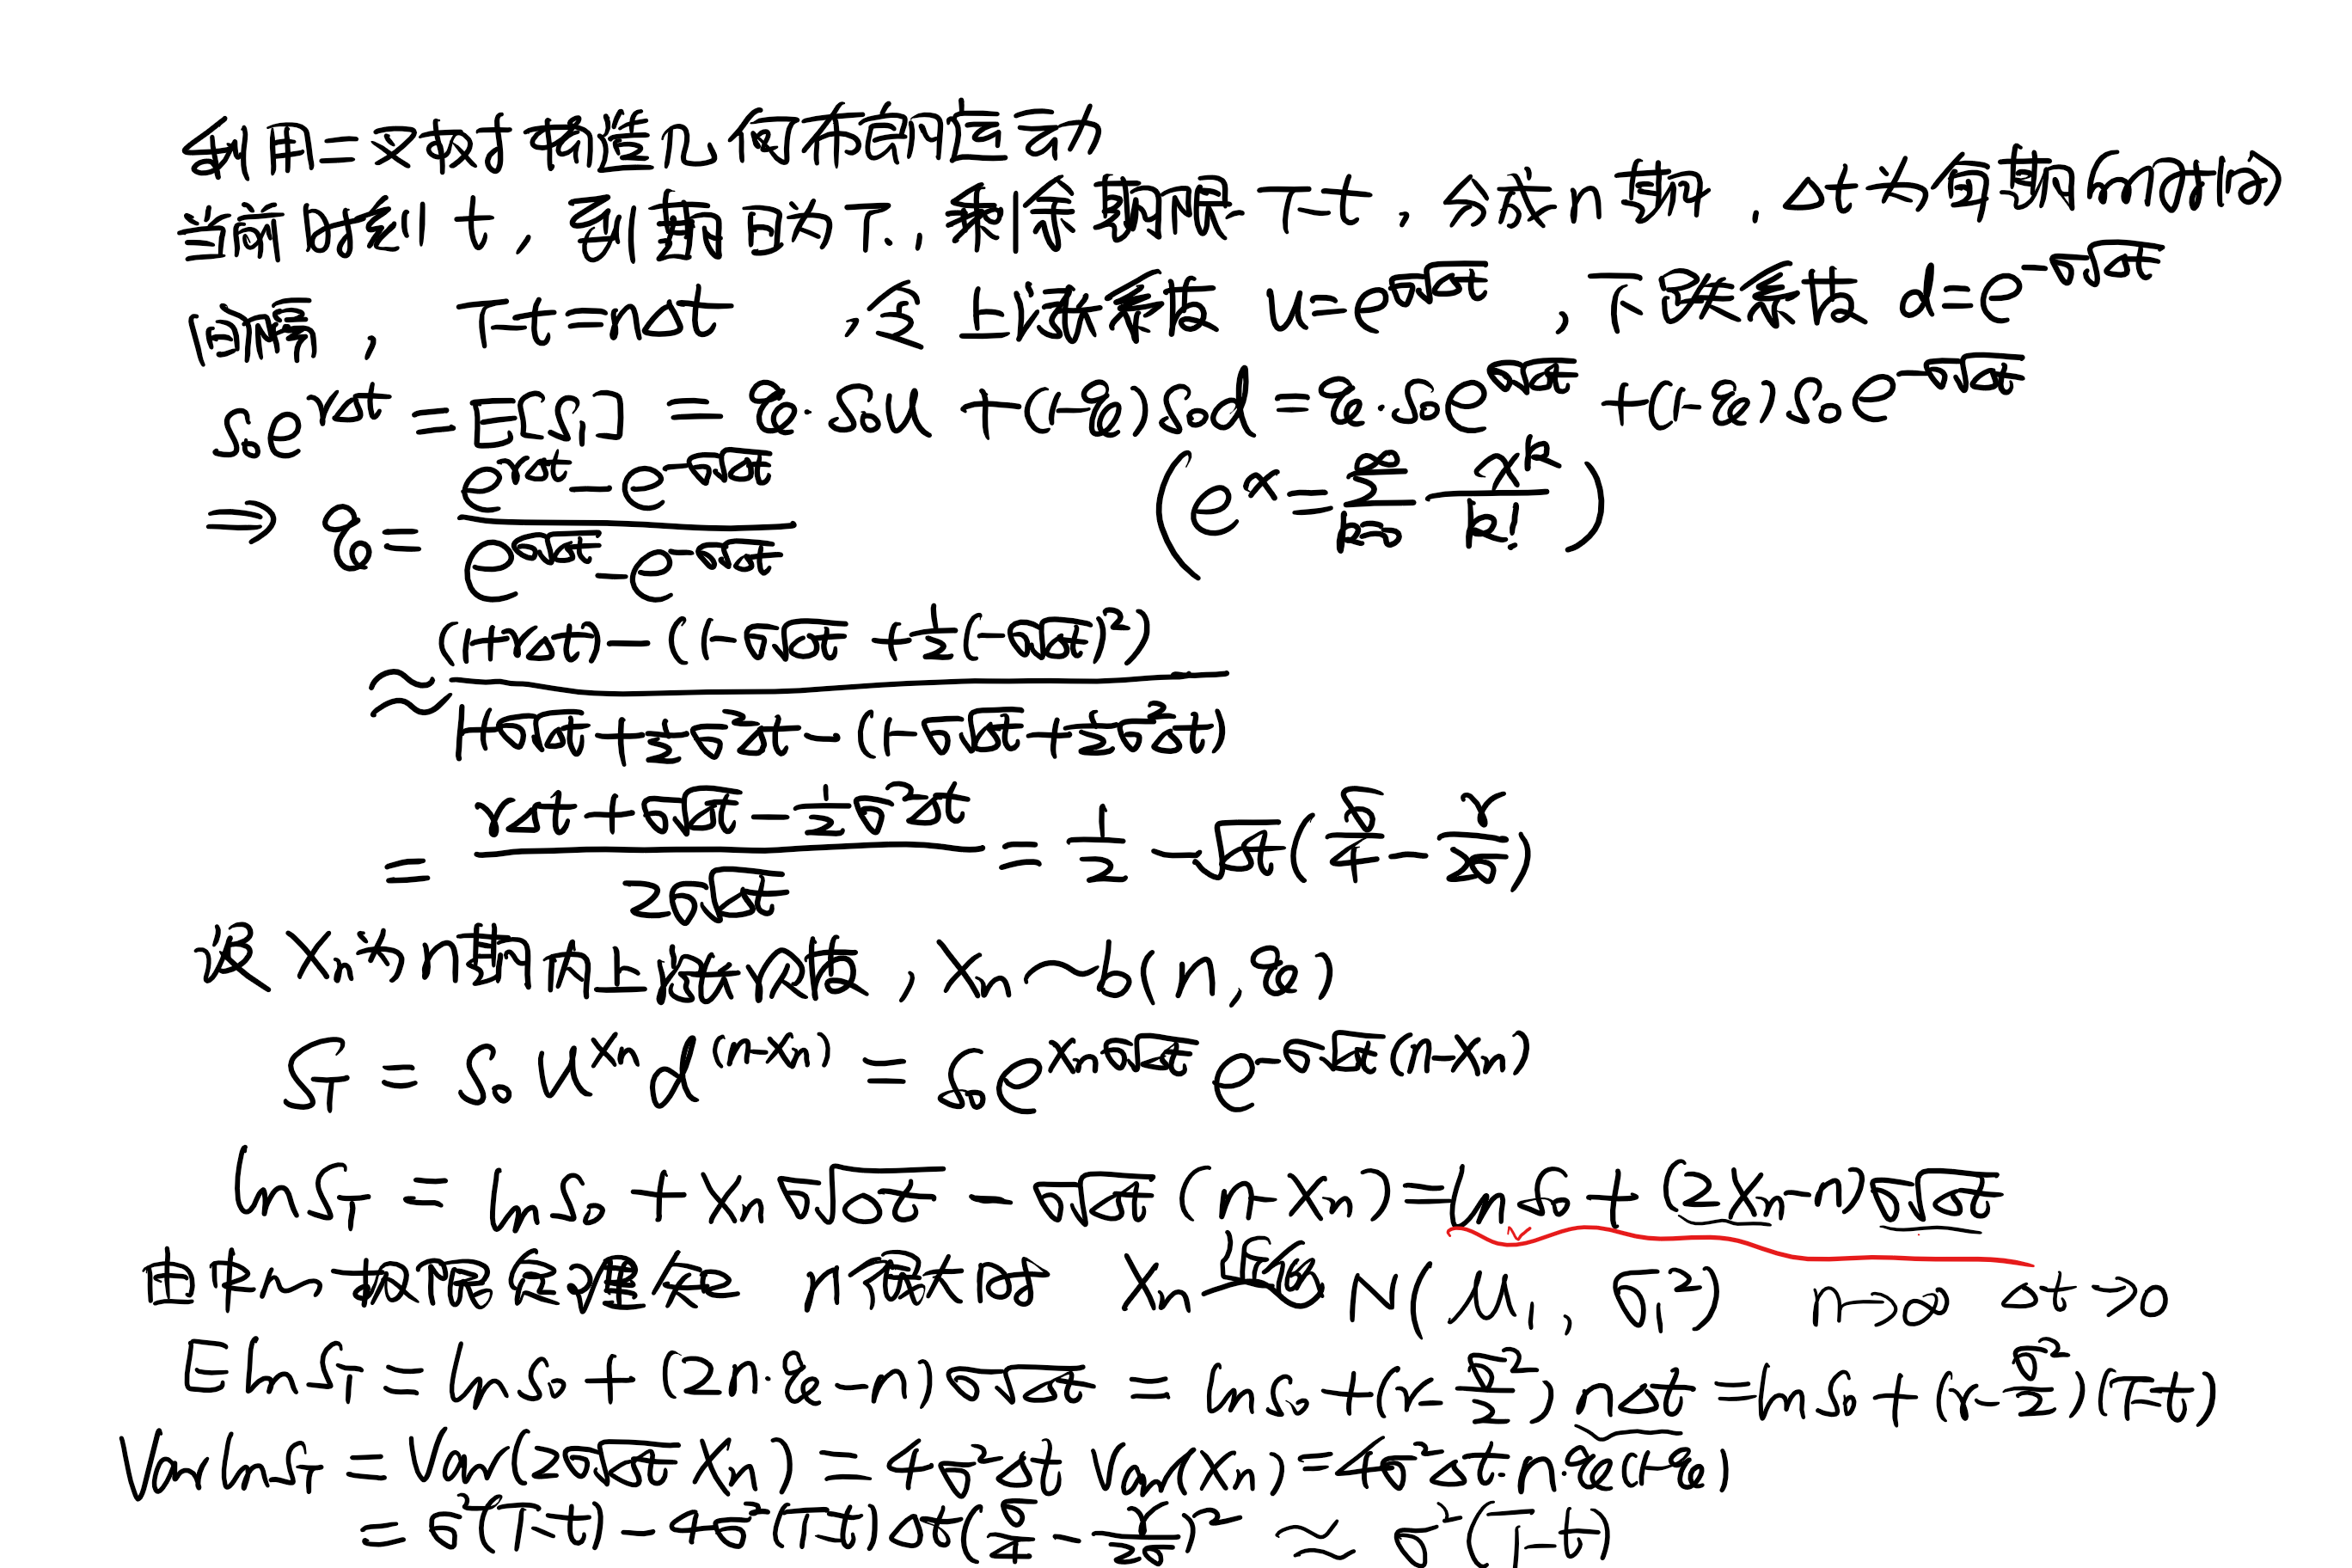 利用二叉树构造几何布朗运动
当前时刻 t, 到期日为 T, 剩余期限 T-t, 分成 n 期, Δt 为每期(n个Δt)
间隔, T-t=nΔt, 令上涨系数 u=e^{σ√Δt}, 下跌系数 d=e^{-σ√Δt}
S₀e^{rΔt} = E[S₁] = q·S₀u + (1-q)S₀d = q·S₀e^{σ√Δt} + (1-q)S₀e^{-σ√Δt}
⇒ q = (e^{rΔt} - e^{-σ√Δt}) / (e^{σ√Δt} - e^{-σ√Δt}) (e^x = Σ_{k=0}^{∞} x^k/k!)
≈ ((1+rΔt) - (1-σ√Δt + ½(-σ√Δt)²)) / (1+σ√Δt + ½σ²Δt - (1-σ√Δt + ½σ²Δt))
= (rΔt + σ√Δt - ½σ²Δt) / (2σ√Δt) = 1/2 - √Δt(σ/4 - r/2σ)
设 Xn 为 n 期内上涨次数, Xn ~ b(n, q)
S_T = S₀ u^{Xn} d^{(n-Xn)} = S₀e^{Xnσ√Δt} e^{-σ√Δt(n-Xn)}
ln S_T = ln S₀ + Xn σ√Δt - σ√Δt(n-Xn) = ln S₀ + (2Xn-n)σ√Δt
由中心极限定理知 n很大时 Xn 近似 N(μ₁, σ₁²) n→∞ Δt→0
E ln S_T = ln S₀ + (2n·q-n)σ√Δt = ln S₀ + (r-σ²/2) nΔt = ln S₀ + (r-σ²/2)(T-t)
Var ln S_T = Var(2σ√Δt Xn) = 4σ²Δt Var(Xn) = 4σ²Δt·n·q(1-q)
= σ²(T-t) - 4σ²(T-t)Δt(σ/4 - r/2σ)² ≈ σ²(T-t)